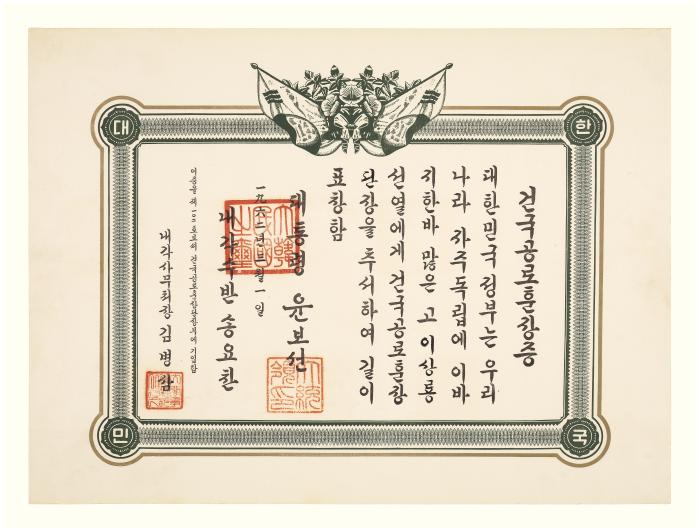 대
한
민
국
건국공로훈장증
대한민국 정부는 우리
나라 자주독립에 이바
지한바 많은 고 이상룡
선열에게 건국공로훈장
단장을 추서하여 길이
표창함
대통령 윤보선
一九六二년 三월 一일
내각수반 송요찬
내각사무처장 김병삼